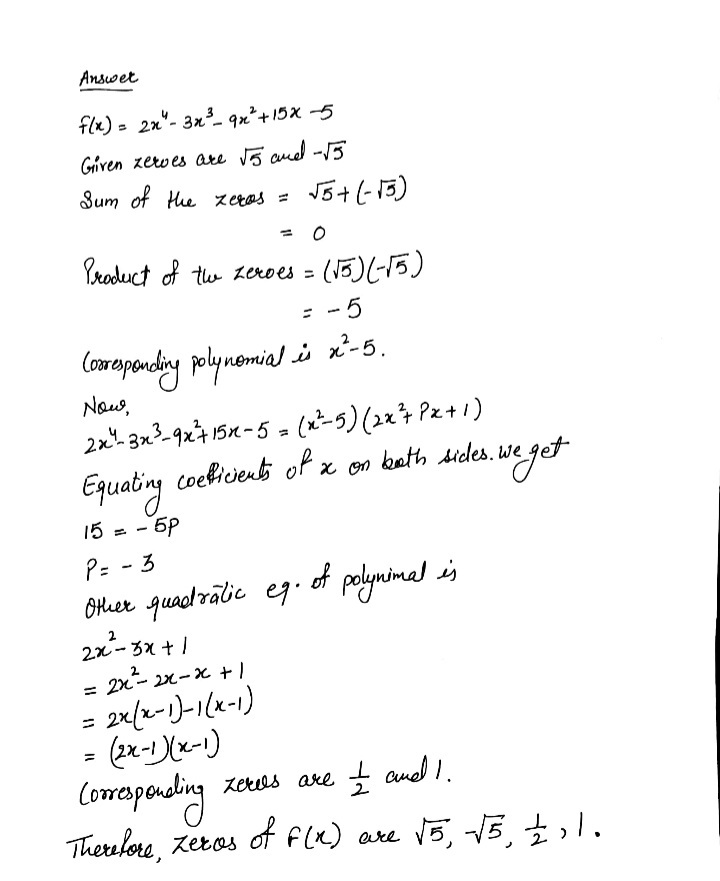 Answer
f(x) = 2x⁴ - 3x³ - 9x² + 15x - 5
Given zeroes are √5 and -√5
Sum of the zeros = √5 + (-√5)
= 0
Product of the zeroes = (√5)(-√5)
= -5
Corresponding polynomial is x² - 5.
Now,
2x⁴ - 3x³ - 9x² + 15x - 5 = (x² - 5)(2x² + Px + 1)
Equating coefficients of x on both sides. we get
15 = - 5P
P = - 3
Other quadratic eq. of polynimal is
2x² - 3x + 1
= 2x² - 2x - x + 1
= 2x(x-1) - 1(x-1)
= (2x-1)(x-1)
Corresponding zeroes are 1/2 and 1.
Therefore, zeros of f(x) are √5, -√5, 1/2, 1.